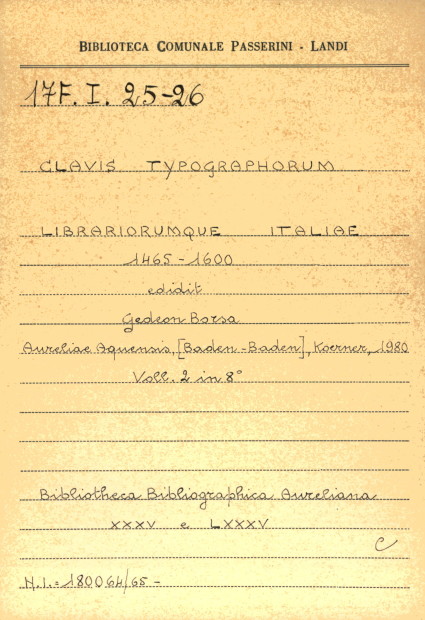 BIBLIOTECA COMUNALE PASSERINI - LANDI
17F. I. 25-26
CLAVIS TYPOGRAPHORUM
LIBRARIORUMQUE ITALIAE
1465-1600
edidit
Gedeon Borsa
Aureliae Aquensis, [Baden-Baden], Koerner, 1980
Voll. 2 in 8°
Bibliotheca Bibliographica Aureliana
XXXV e LXXXV
C
N.I. = 180064/65 -